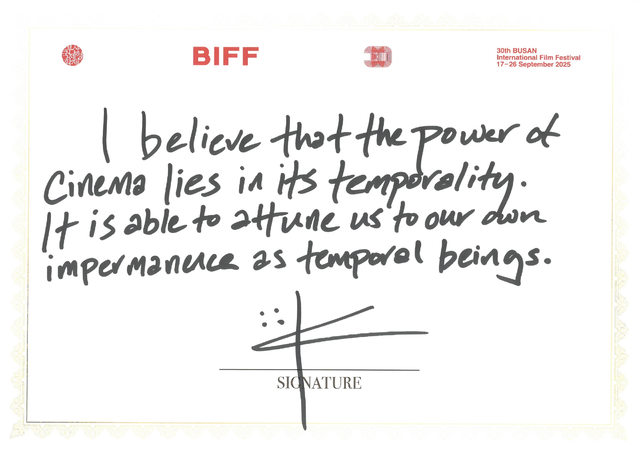 BIFF
30th BUSAN
International Film Festival
17–26 September 2025
I believe that the power of
cinema lies in its temporality.
It is able to attune us to our own
impermanence as temporal beings.
SIGNATURE